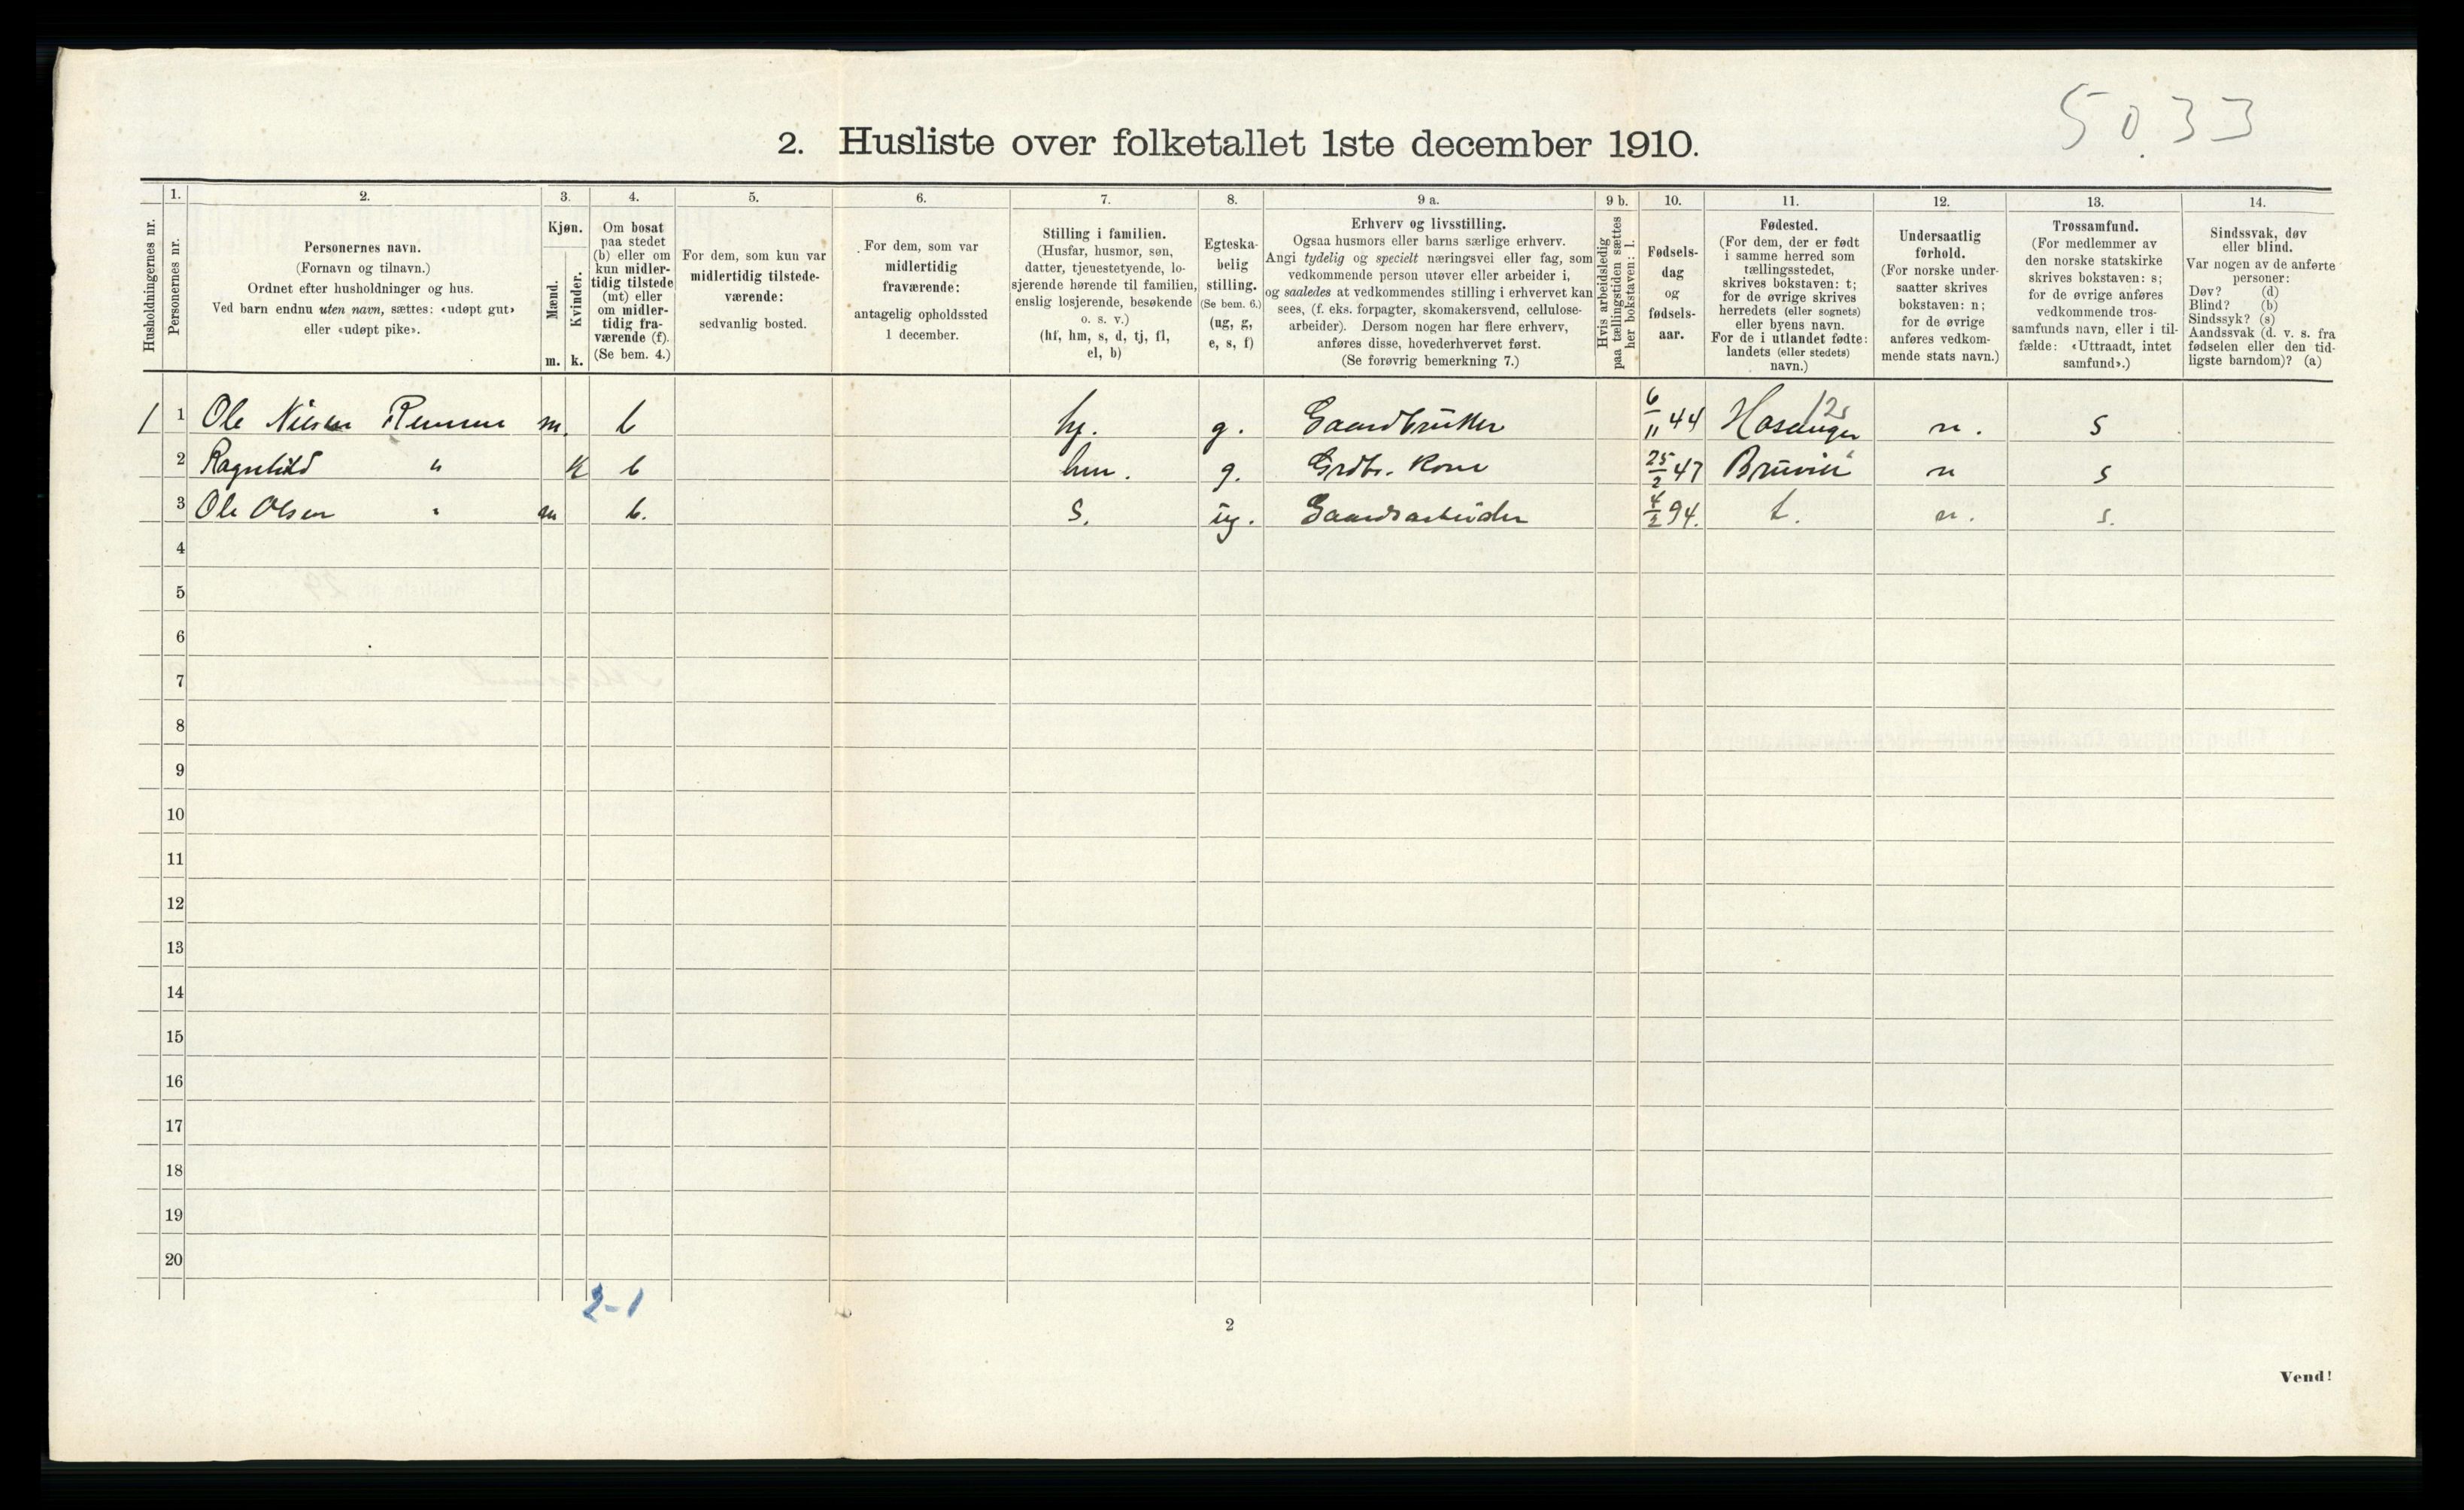 5033
2. Husliste over folketallet 1ste december 1910.
Husholdningernes nr.
1.
Personernes nr.
2.
Personernes navn.
(Fornavn og tilnavn.)
Ordnet efter husholdninger og hus.
Ved barn endnu uten navn, sættes: «udøpt gut»
eller «udøpt pike».
3.
Kjøn.
Mænd.
Kvinder.
m. k.
4.
Om bosat
paa stedet
(b) eller om
kun midler-
tidig tilstede
(mt) eller
om midler-
tidig fra-
værende (f).
(Se bem. 4.)
5.
For dem, som kun var
midlertidig tilstede-
værende:
sedvanlig bosted.
6.
For dem, som var
midlertidig
fraværende:
antagelig opholdssted
1 december.
7.
Stilling i familien.
(Husfar, husmor, søn,
datter, tjenestetyende, lo-
sjerende hørende til familien,
enslig losjerende, besøkende
o. s. v.)
(hf, hm, s, d, tj, fl,
el, b)
8.
Egteska-
belig
stilling.
(Se bem. 6.)
(ug, g,
e, s, f)
9 a.
Erhverv og livsstilling.
Ogsaa husmors eller barns særlige erhverv.
Angi tydelig og specielt næringsvei eller fag, som
vedkommende person utøver eller arbeider i,
og saaledes at vedkommendes stilling i erhvervet kan
sees, (f. eks. forpagter, skomakersvend, cellulose-
arbeider). Dersom nogen har flere erhverv,
anføres disse, hovederhvervet først.
(Se forøvrig bemerkning 7.)
9 b.
Hvis arbeidsledig
paa tællingstiden sættes
her bokstaven: l.
10.
Fødsels-
dag
og
fødsels-
aar.
11.
Fødested.
(For dem, der er født
i samme herred som
tællingsstedet,
skrives bokstaven: t;
for de øvrige skrives
herredets (eller sognets)
eller byens navn.
For de i utlandet fødte:
landets (eller stedets)
navn.)
12.
Undersaatlig
forhold.
(For norske under-
saatter skrives
bokstaven: n;
for de øvrige
anføres vedkom-
mende stats navn.)
13.
Trossamfund.
(For medlemmer av
den norske statskirke
skrives bokstaven: s;
for de øvrige anføres
vedkommende tros-
samfunds navn, eller i til-
fælde: «Uttraadt, intet
samfund».)
14.
Sindssvak, døv
eller blind.
Var nogen av de anførte
personer:
Døv? (d)
Blind? (b)
Sindssyk? (s)
Aandssvak (d. v. s. fra
fødselen eller den tid-
ligste barndom)? (a)
1 1 Ole Nilsen m. b hf. g. Gaardbruker 6/11 44 Hosanger n. s
2 Ragnhild " k b hm. g. Grdbr. Kone 25/2 47 Bruvik n s
3 Ole Olsen " m b. s. ug. Gaardsarbeider 4/2 94. t. n. s.
4
5
6
7
8
9
10
11
12
13
14
15
16
17
18
19
20
2-1
2
Vend!